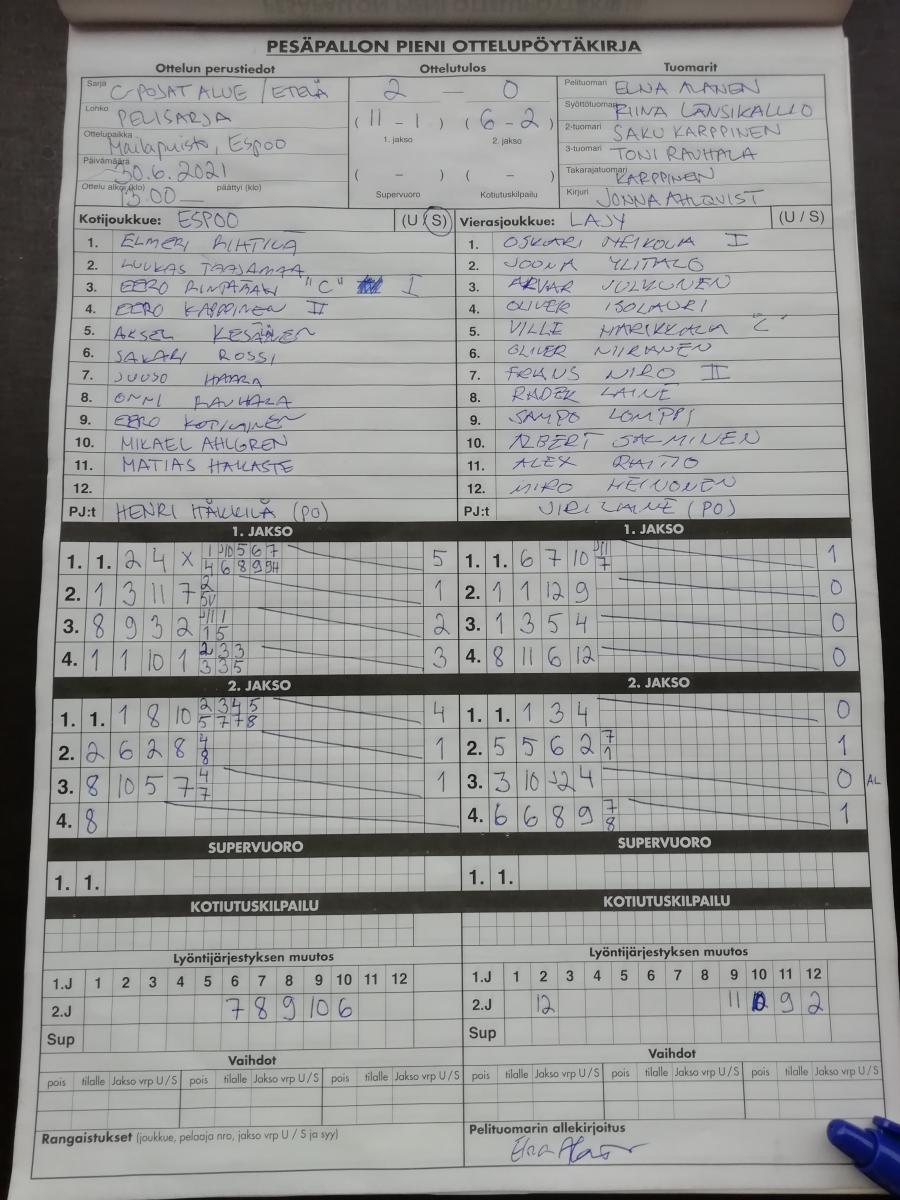 PESÄPALLON PIENI OTTELUPÖYTÄKIRJA
Ottelun perustiedot Ottelutulos Tuomarit
Sarja C-POJAT ALUE / ETELÄ 2 — 0 Pelituomari ELNA ALANEN
Lohko PELISARJA (11 - 1) (6 - 2) Syöttötuomari RIINA LÄNSIKALLIO
1. jakso 2. jakso 2-tuomari SAKU KARPPINEN
Ottelupaikka Mailapuisto, Espoo 3-tuomari TONI RAUHALA
Päivämäärä 30.6.2021 ( - ) ( - ) Takarajatuomari KARPPINEN
Ottelu alkoi (klo) 13.00 päättyi (klo) — Supervuoro Kotiutuskilpailu Kirjuri JONNA AHLQVIST
Kotijoukkue: ESPOO (U / S) Vierasjoukkue: LAJY (U / S)
1. ELMERI RIHTILÄ 1. OSKARI HEIKOLA I
2. LUUKAS TAAJAMAA 2. JOONA YLITALO
3. EERO RINTAMÄKI "C" I 3. ARVAR JULKUNEN
4. EERO KARPPINEN II 4. OLIVER ISOLAURI
5. AKSEL KESÄNEN 5. VILLE MARIKKALA "C"
6. SAKARI ROSSI 6. OLIVER NIIRANEN
7. JUUSO HAARA 7. FRANS NIRO II
8. ONNI RAUHALA 8. RADEK LAINE
9. EERO KOTILAINEN 9. SAMPO LOMPPI
10. MIKAEL AHLGREN 10. ALBERT SALMINEN
11. MATIAS HALLASTE 11. ALEX RAITIO
12. 12. MIRO HEINONEN
PJ:t HENRI HÄKKILÄ (PO) PJ:t JIRI LAINE (PO)
1. JAKSO 1. JAKSO
1. 1. 2 4 X 1 10 5 6 7 5 1. 1. 6 7 10 11 1
4 6 8 9 7
2. 1 3 11 7 2 1 2. 1 1 12 9 0
5V
3. 8 9 3 2 11 1 2 3. 1 3 5 4 0
1 5
4. 1 1 10 1 2 3 3 3 4. 8 11 6 12 0
3 3 5
2. JAKSO 2. JAKSO
1. 1. 1 8 10 2 3 4 5 4 1. 1. 1 3 4 0
5 7 7 8
2. 2 6 2 8 4 1 2. 5 5 6 2 7 1
8 1
3. 8 10 5 7 4 1 3. 3 10 12 4 0 AL
7
4. 8 4. 6 6 8 9 7 1
8
SUPERVUORO SUPERVUORO
1. 1. 1. 1.
KOTIUTUSKILPAILU KOTIUTUSKILPAILU
Lyöntijärjestyksen muutos Lyöntijärjestyksen muutos
1.J 1 2 3 4 5 6 7 8 9 10 11 12 1.J 1 2 3 4 5 6 7 8 9 10 11 12
2.J 7 8 9 10 6 2.J 12 11 10 9 2
Sup Sup
Vaihdot Vaihdot
pois tilalle Jakso vrp U / S pois tilalle Jakso vrp U / S pois tilalle Jakso vrp U / S pois tilalle Jakso vrp U / S pois tilalle Jakso vrp U / S pois tilalle Jakso vrp U / S
Rangaistukset (joukkue, pelaaja nro, jakso vrp U / S ja syy) Pelituomarin allekirjoitus
Elna Alanen